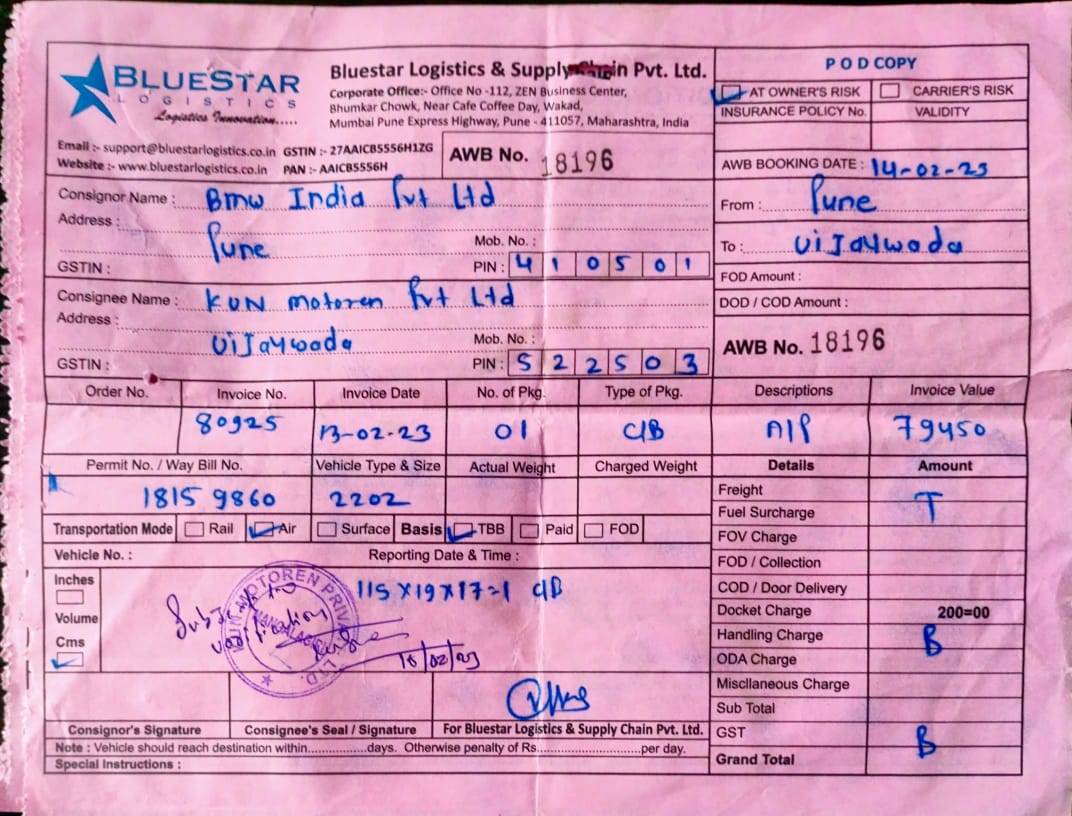 BLUESTAR
LOGISTICS
Logistics Innovation.....
Bluestar Logistics & Supply Chain Pvt. Ltd.
Corporate Office:- Office No -112, ZEN Business Center,
Bhumkar Chowk, Near Cafe Coffee Day, Wakad,
Mumbai Pune Express Highway, Pune - 411057, Maharashtra, India
Email :- support@bluestarlogistics.co.in GSTIN :- 27AAICB5556H1ZG
Website :- www.bluestarlogistics.co.in PAN :- AAICB5556H
AWB No. 18196
POD COPY
AT OWNER'S RISK CARRIER'S RISK
INSURANCE POLICY No. VALIDITY
AWB BOOKING DATE : 14-02-23
Consignor Name : BMW India Pvt Ltd
Address :
Pune
Mob. No. :
GSTIN : PIN : 410501
From : Pune
To : Vijaywada
FOD Amount :
DOD / COD Amount :
Consignee Name : KUN motoren Pvt Ltd
Address :
Vijaywada
Mob. No. :
GSTIN : PIN : 522503
AWB No. 18196
Order No. Invoice No. Invoice Date No. of Pkg. Type of Pkg. Descriptions Invoice Value
80925 13-02-23 01 C/B A/P 79450
Permit No. / Way Bill No. Vehicle Type & Size Actual Weight Charged Weight Details Amount
1815 9860 2202
Freight
Fuel Surcharge T
FOV Charge
FOD / Collection
COD / Door Delivery
Docket Charge 200=00
Handling Charge B
ODA Charge
Miscllaneous Charge
Sub Total
GST B
Grand Total
Transportation Mode Rail Air Surface Basis TBB Paid FOD
Vehicle No. : Reporting Date & Time :
Inches
Volume
Cms
115 X 19 X 17=1 C/B
Subject to
verification
MOTOREN PRIVATE LTD.
MANGALAGIRI
16/02/23
Consignor's Signature Consignee's Seal / Signature For Bluestar Logistics & Supply Chain Pvt. Ltd.
Note : Vehicle should reach destination within..................days. Otherwise penalty of Rs..............................per day.
Special Instructions :